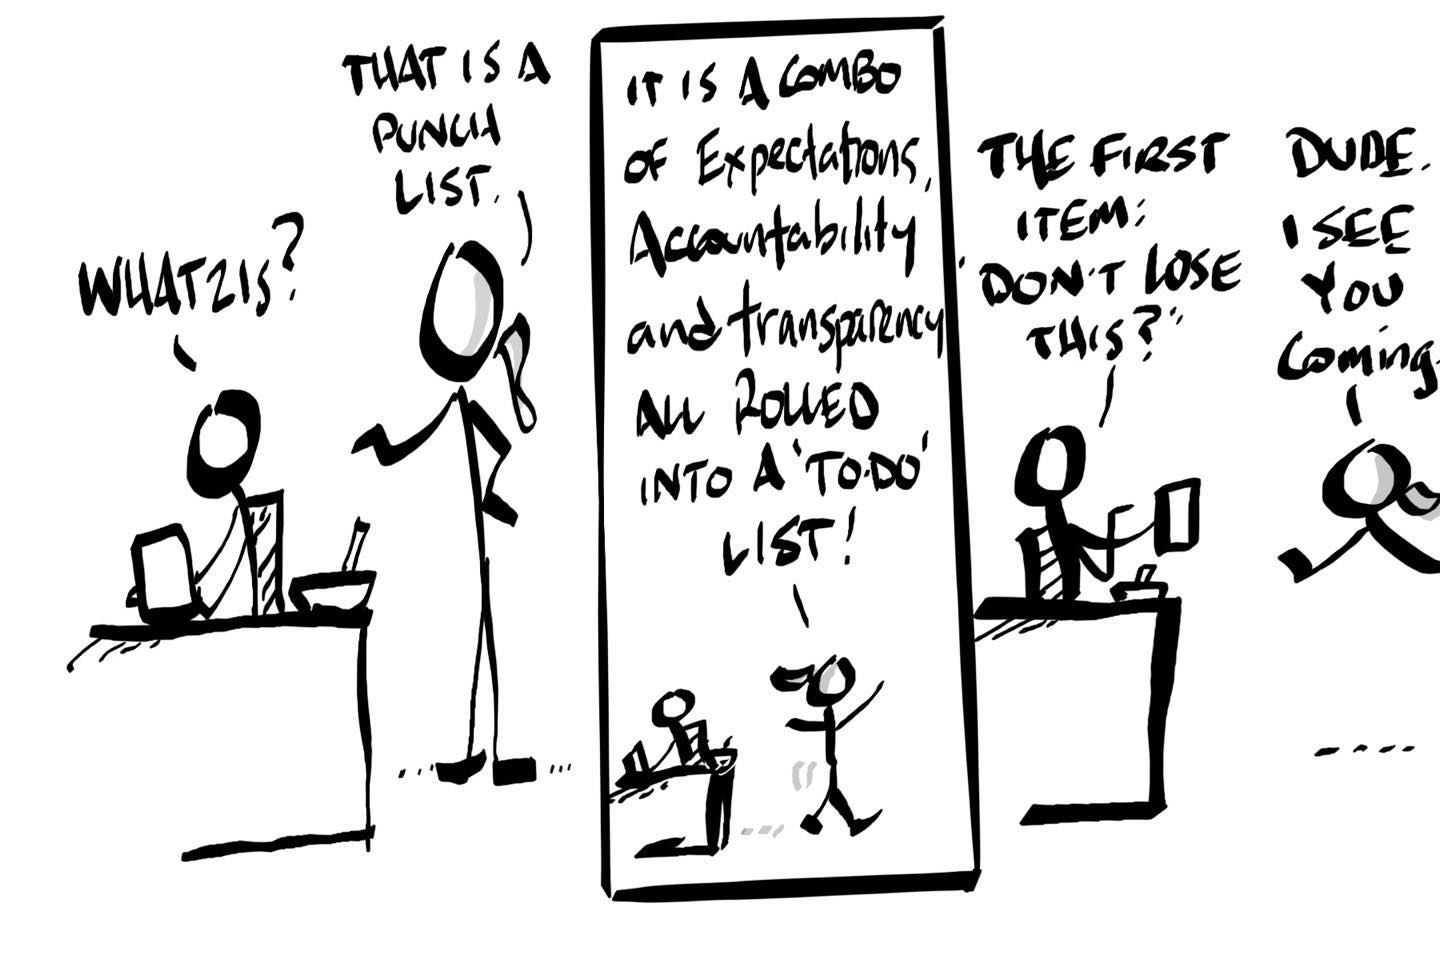 WHATZIS?
THAT IS A
PUNCH
LIST.
IT IS A COMBO
OF Expectations,
Accountability
and transparency
ALL ROLLED
INTO A 'TO-DO'
LIST!
THE FIRST
ITEM:
"DON'T LOSE
THIS?"
DUDE.
I SEE
YOU
Coming.